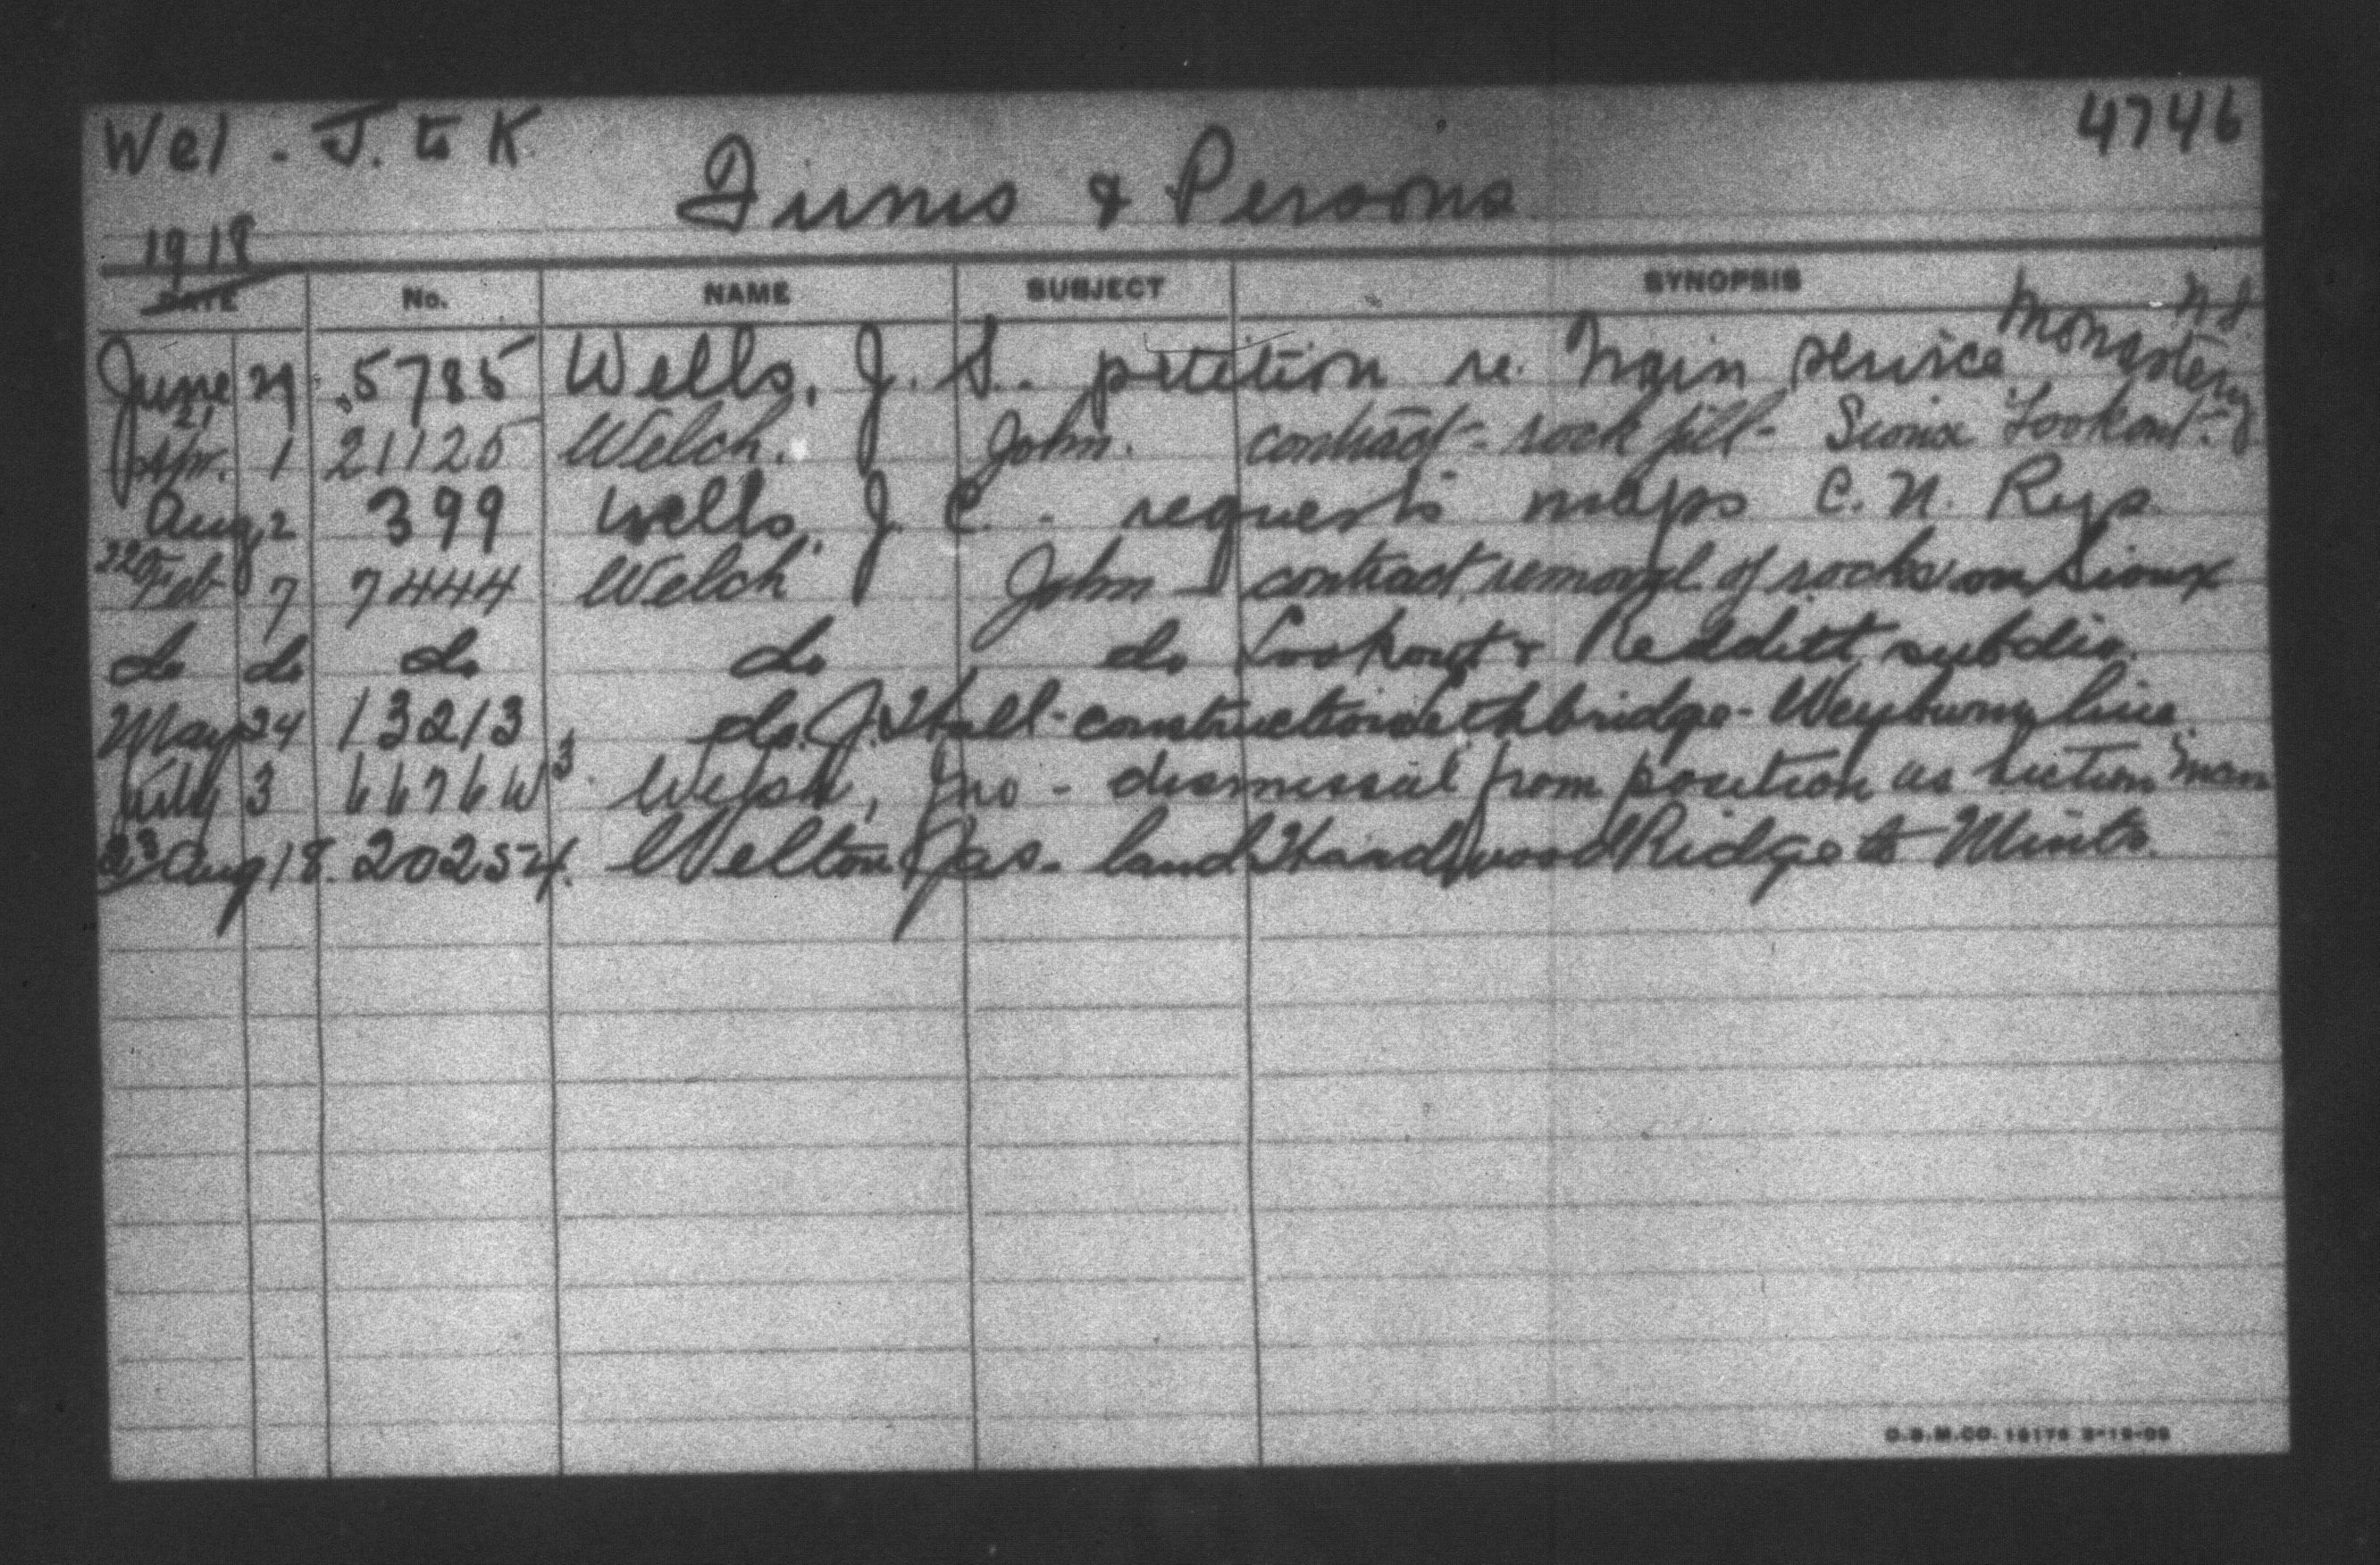 Wel - J. to K. 4746
Firms & Persons
1918
DATE No. NAME SUBJECT SYNOPSIS
June 29 5785 Wells, J. S. - petition re. train service Monastery N S
21 Apr. 1 21125 Welch. John. contract - rock fill - Sioux Lookout.
Aug 2 399 Wells, J. C. - requests maps C. N. Rys.
22 Feb 7 7444 Welch John - contract, removal of rocks on Sioux
do do do do do Lookout & Redditt subdiv.
May 24 13213 do. J. Hall - construction Lethbridge - Weyburn line.
July 3 6676 W3. Welsh, Jno - dismissal from position as section man
23 Aug 18. 20254. Welton Jas - land Hardwood Ridge to Minto.
O.S.M.CO. 16176 3-19-08